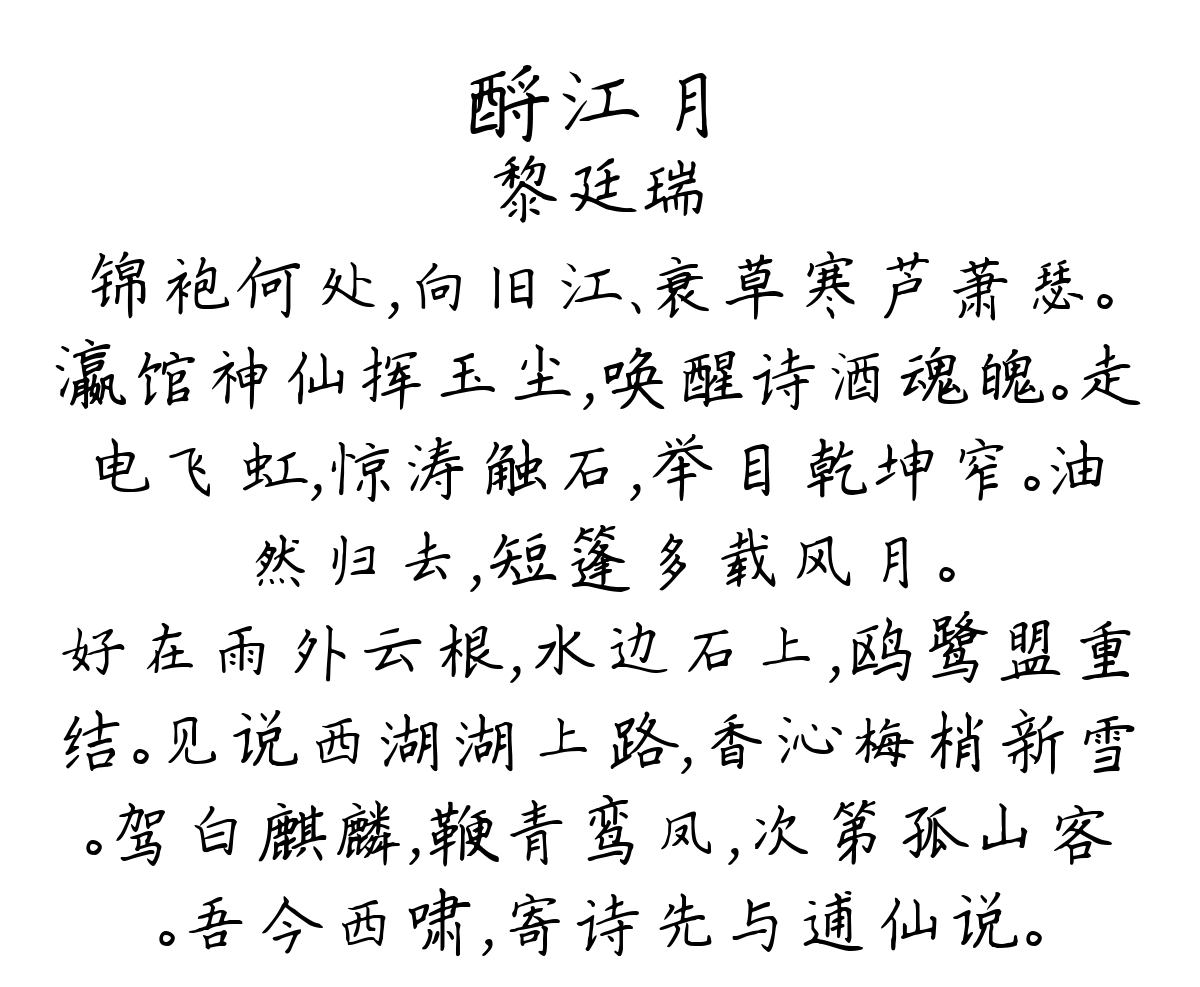 酹江月
黎廷瑞
锦袍何处,向旧江、衰草寒芦萧瑟。
瀛馆神仙挥玉尘,唤醒诗酒魂魄。走
电飞虹,惊涛触石,举目乾坤窄。油
然归去,短篷多载风月。
好在雨外云根,水边石上,鸥鹭盟重
结。见说西湖湖上路,香沁梅梢新雪
。驾白麒麟,鞭青鸾凤,次第孤山客
。吾今西啸,寄诗先与逋仙说。